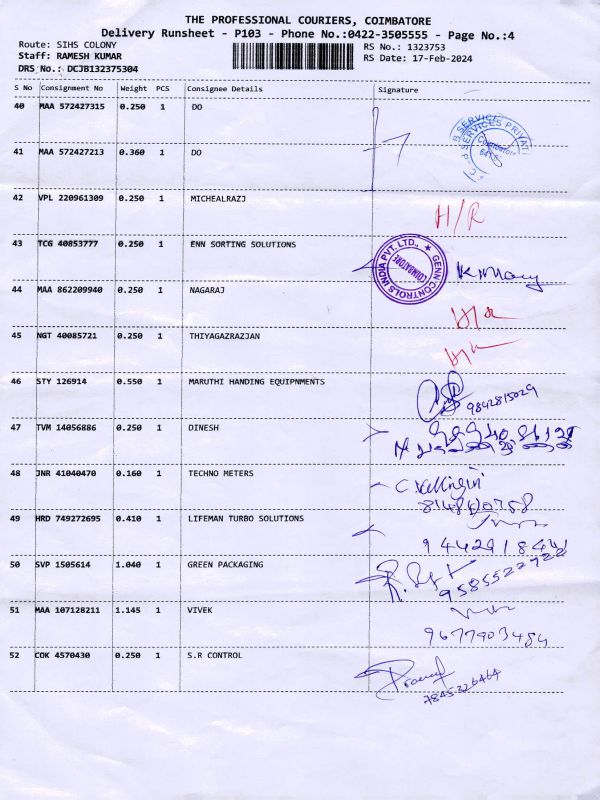 THE PROFESSIONAL COURIERS, COIMBATORE
Delivery Runsheet - P103 - Phone No.:0422-3505555 - Page No.:4
Route: SIHS COLONY RS No.: 1323753
Staff: RAMESH KUMAR RS Date: 17-Feb-2024
DRS No.: DCJB132375304
S No Consignment No Weight PCS Consignee Details Signature
40 MAA 572427315 0.250 1 DO
41 MAA 572427213 0.360 1 DO
42 VPL 220961309 0.250 1 MICHEALRAZJ H/R
43 TCG 40853777 0.250 1 ENN SORTING SOLUTIONS
GENN CONTROLS INDIA PVT. LTD., COIMBATORE
44 MAA 862209940 0.250 1 NAGARAJ
45 NGT 40085721 0.250 1 THIYAGAZRAZJAN
46 STY 126914 0.550 1 MARUTHI HANDING EQUIPNMENTS 9842815029
47 TVM 14056886 0.250 1 DINESH
48 JNR 41040470 0.160 1 TECHNO METERS
49 HRD 749272695 0.410 1 LIFEMAN TURBO SOLUTIONS
50 SVP 1505614 1.040 1 GREEN PACKAGING 9585522722
51 MAA 107128211 1.145 1 VIVEK 9677903484
52 COK 4570430 0.250 1 S.R CONTROL 7845326464